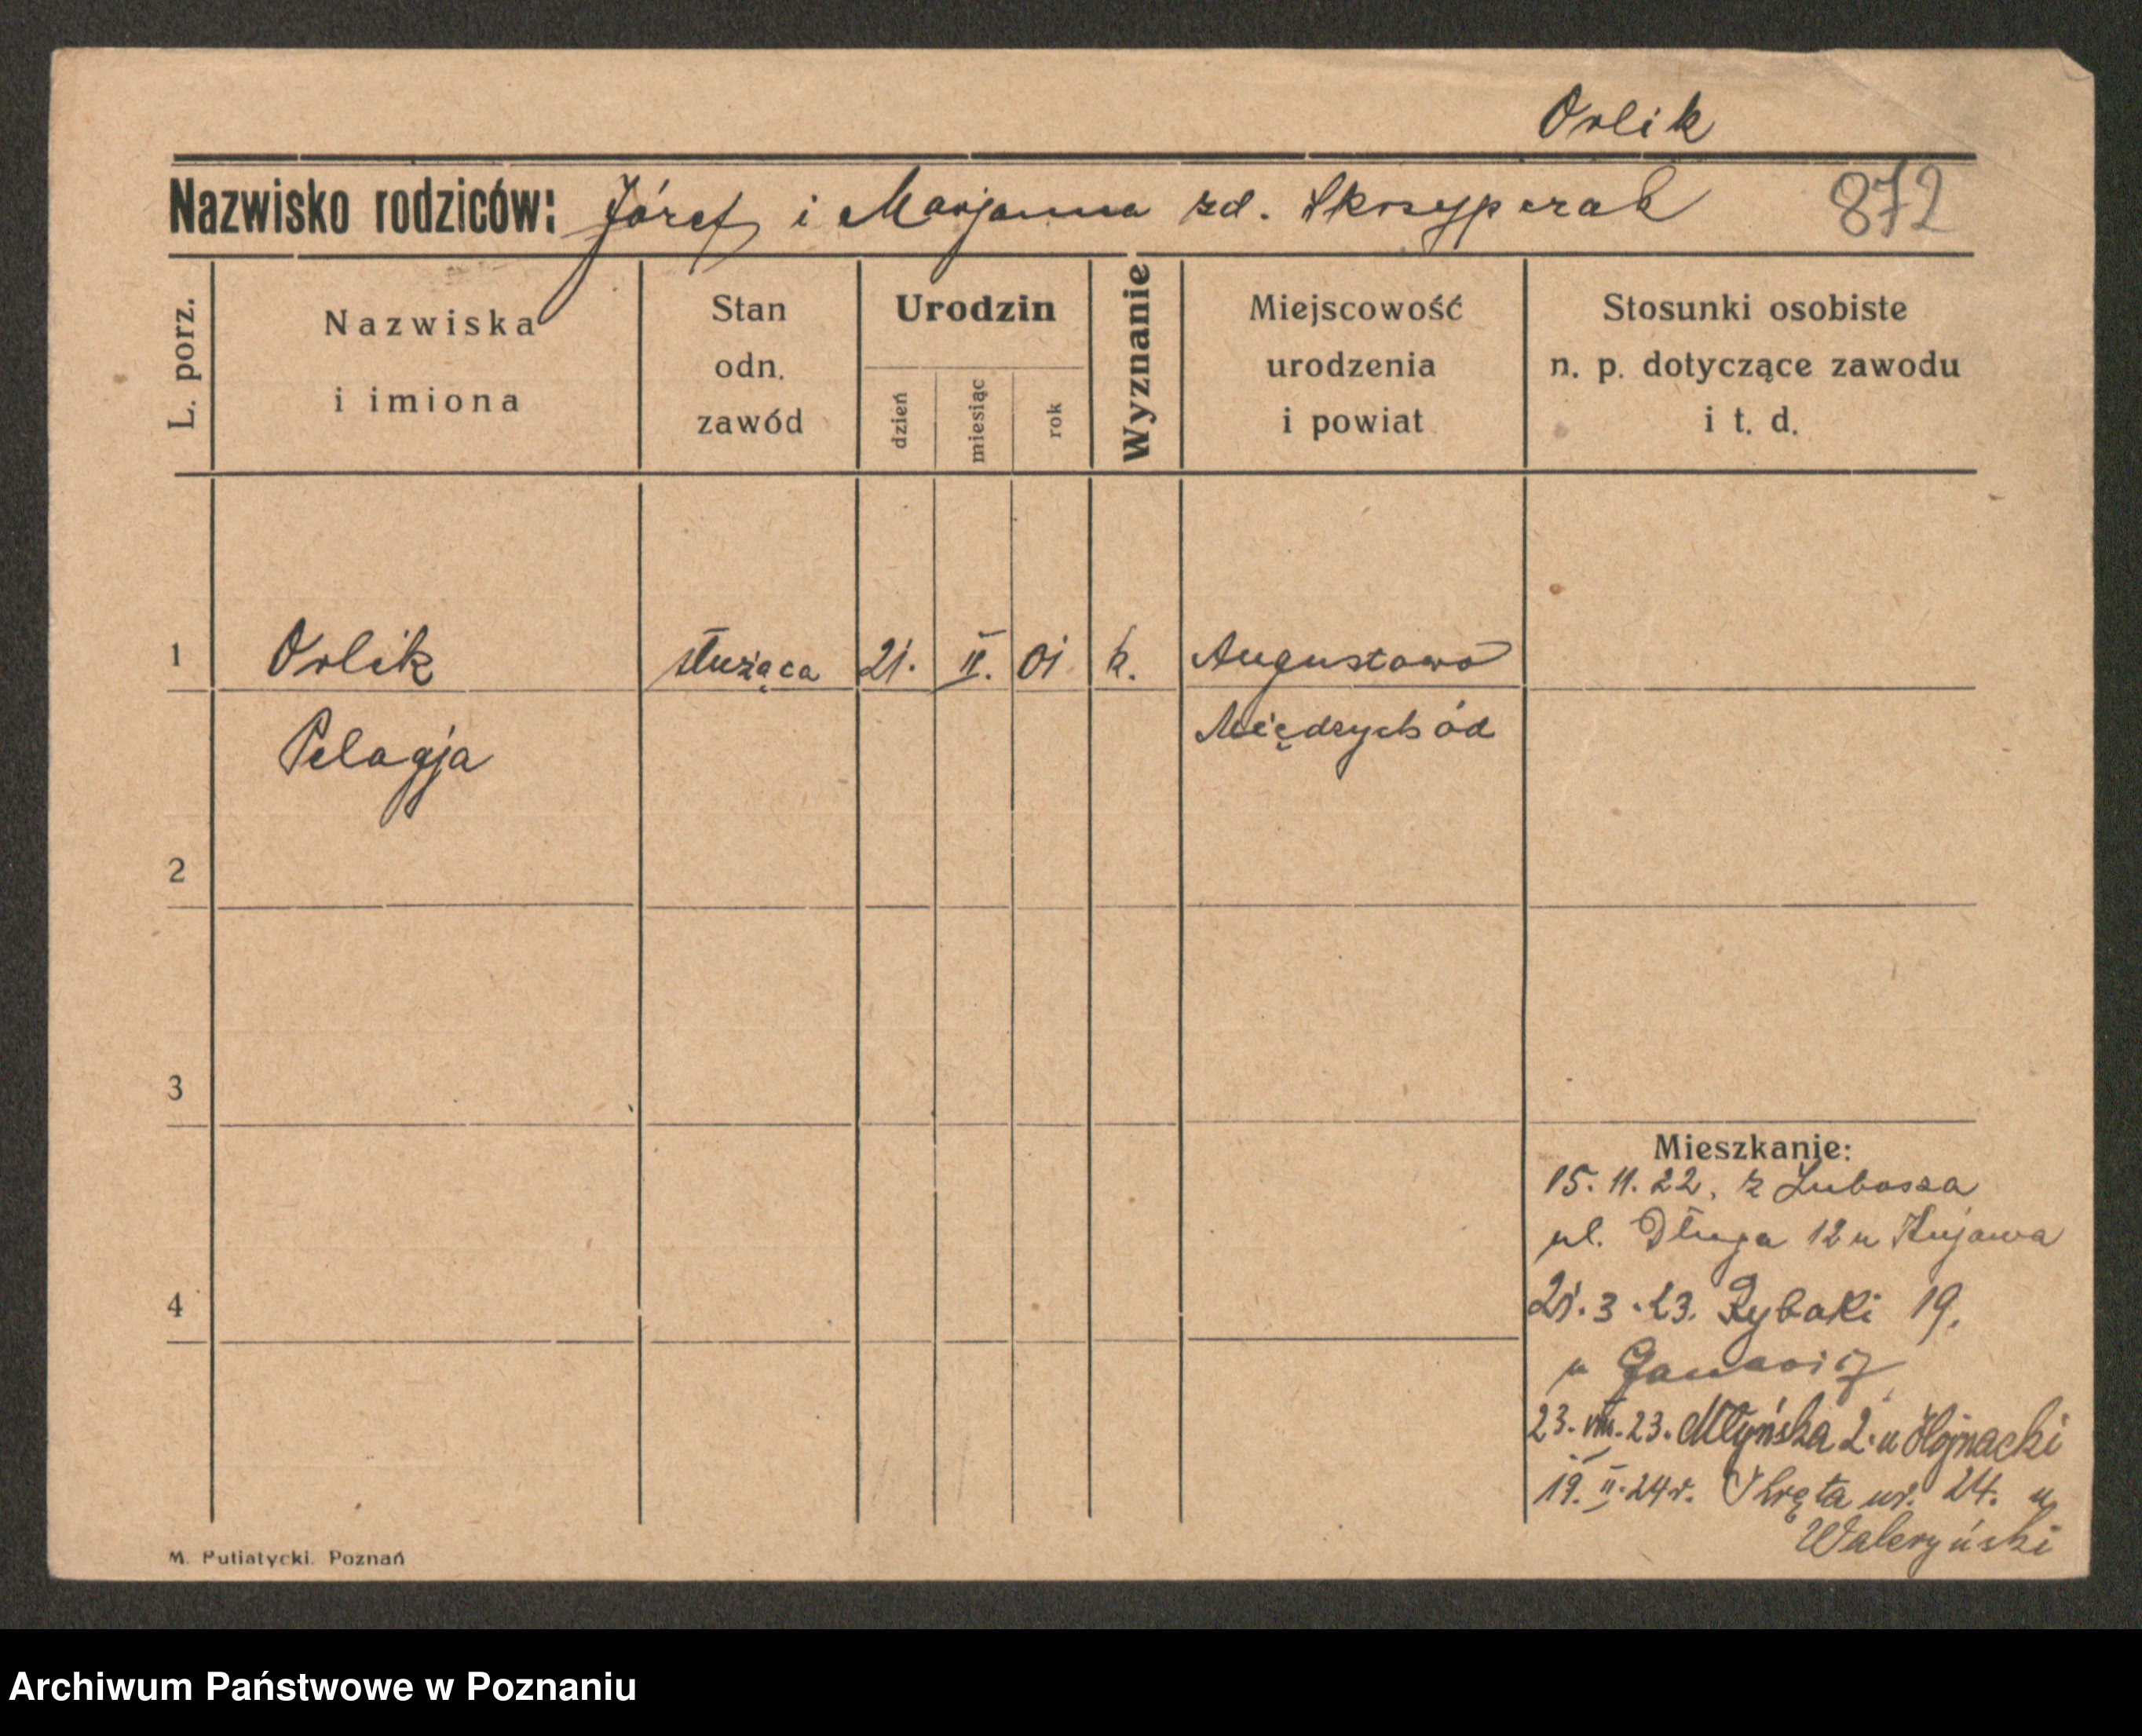 Orlik
Nazwisko rodziców: Józef i Marjanna zd. Skrzypczak 872
L. porz.
Nazwiska
i imiona
Stan
odn.
zawód
Urodzin
dzień
miesiąc
rok
Wyznanie
Miejscowość
urodzenia
i powiat
Stosunki osobiste
n. p. dotyczące zawodu
i t. d.
1 Orlik służąca 21. II. 01 k. Augustowo
Pelagja Międzychód
2
3
4
Mieszkanie:
15. 11. 22. z Lubosza
ul. Długa 12 u Kujawa
21. 3. 23. Rybaki 19.
u
23. VIII. 23. Młyńska 2. u Hojnacki
19. II. 24 r. Kręta nr. 24. u
Waleryński
M. Putiatycki. Poznań
Archiwum Państwowe w Poznaniu